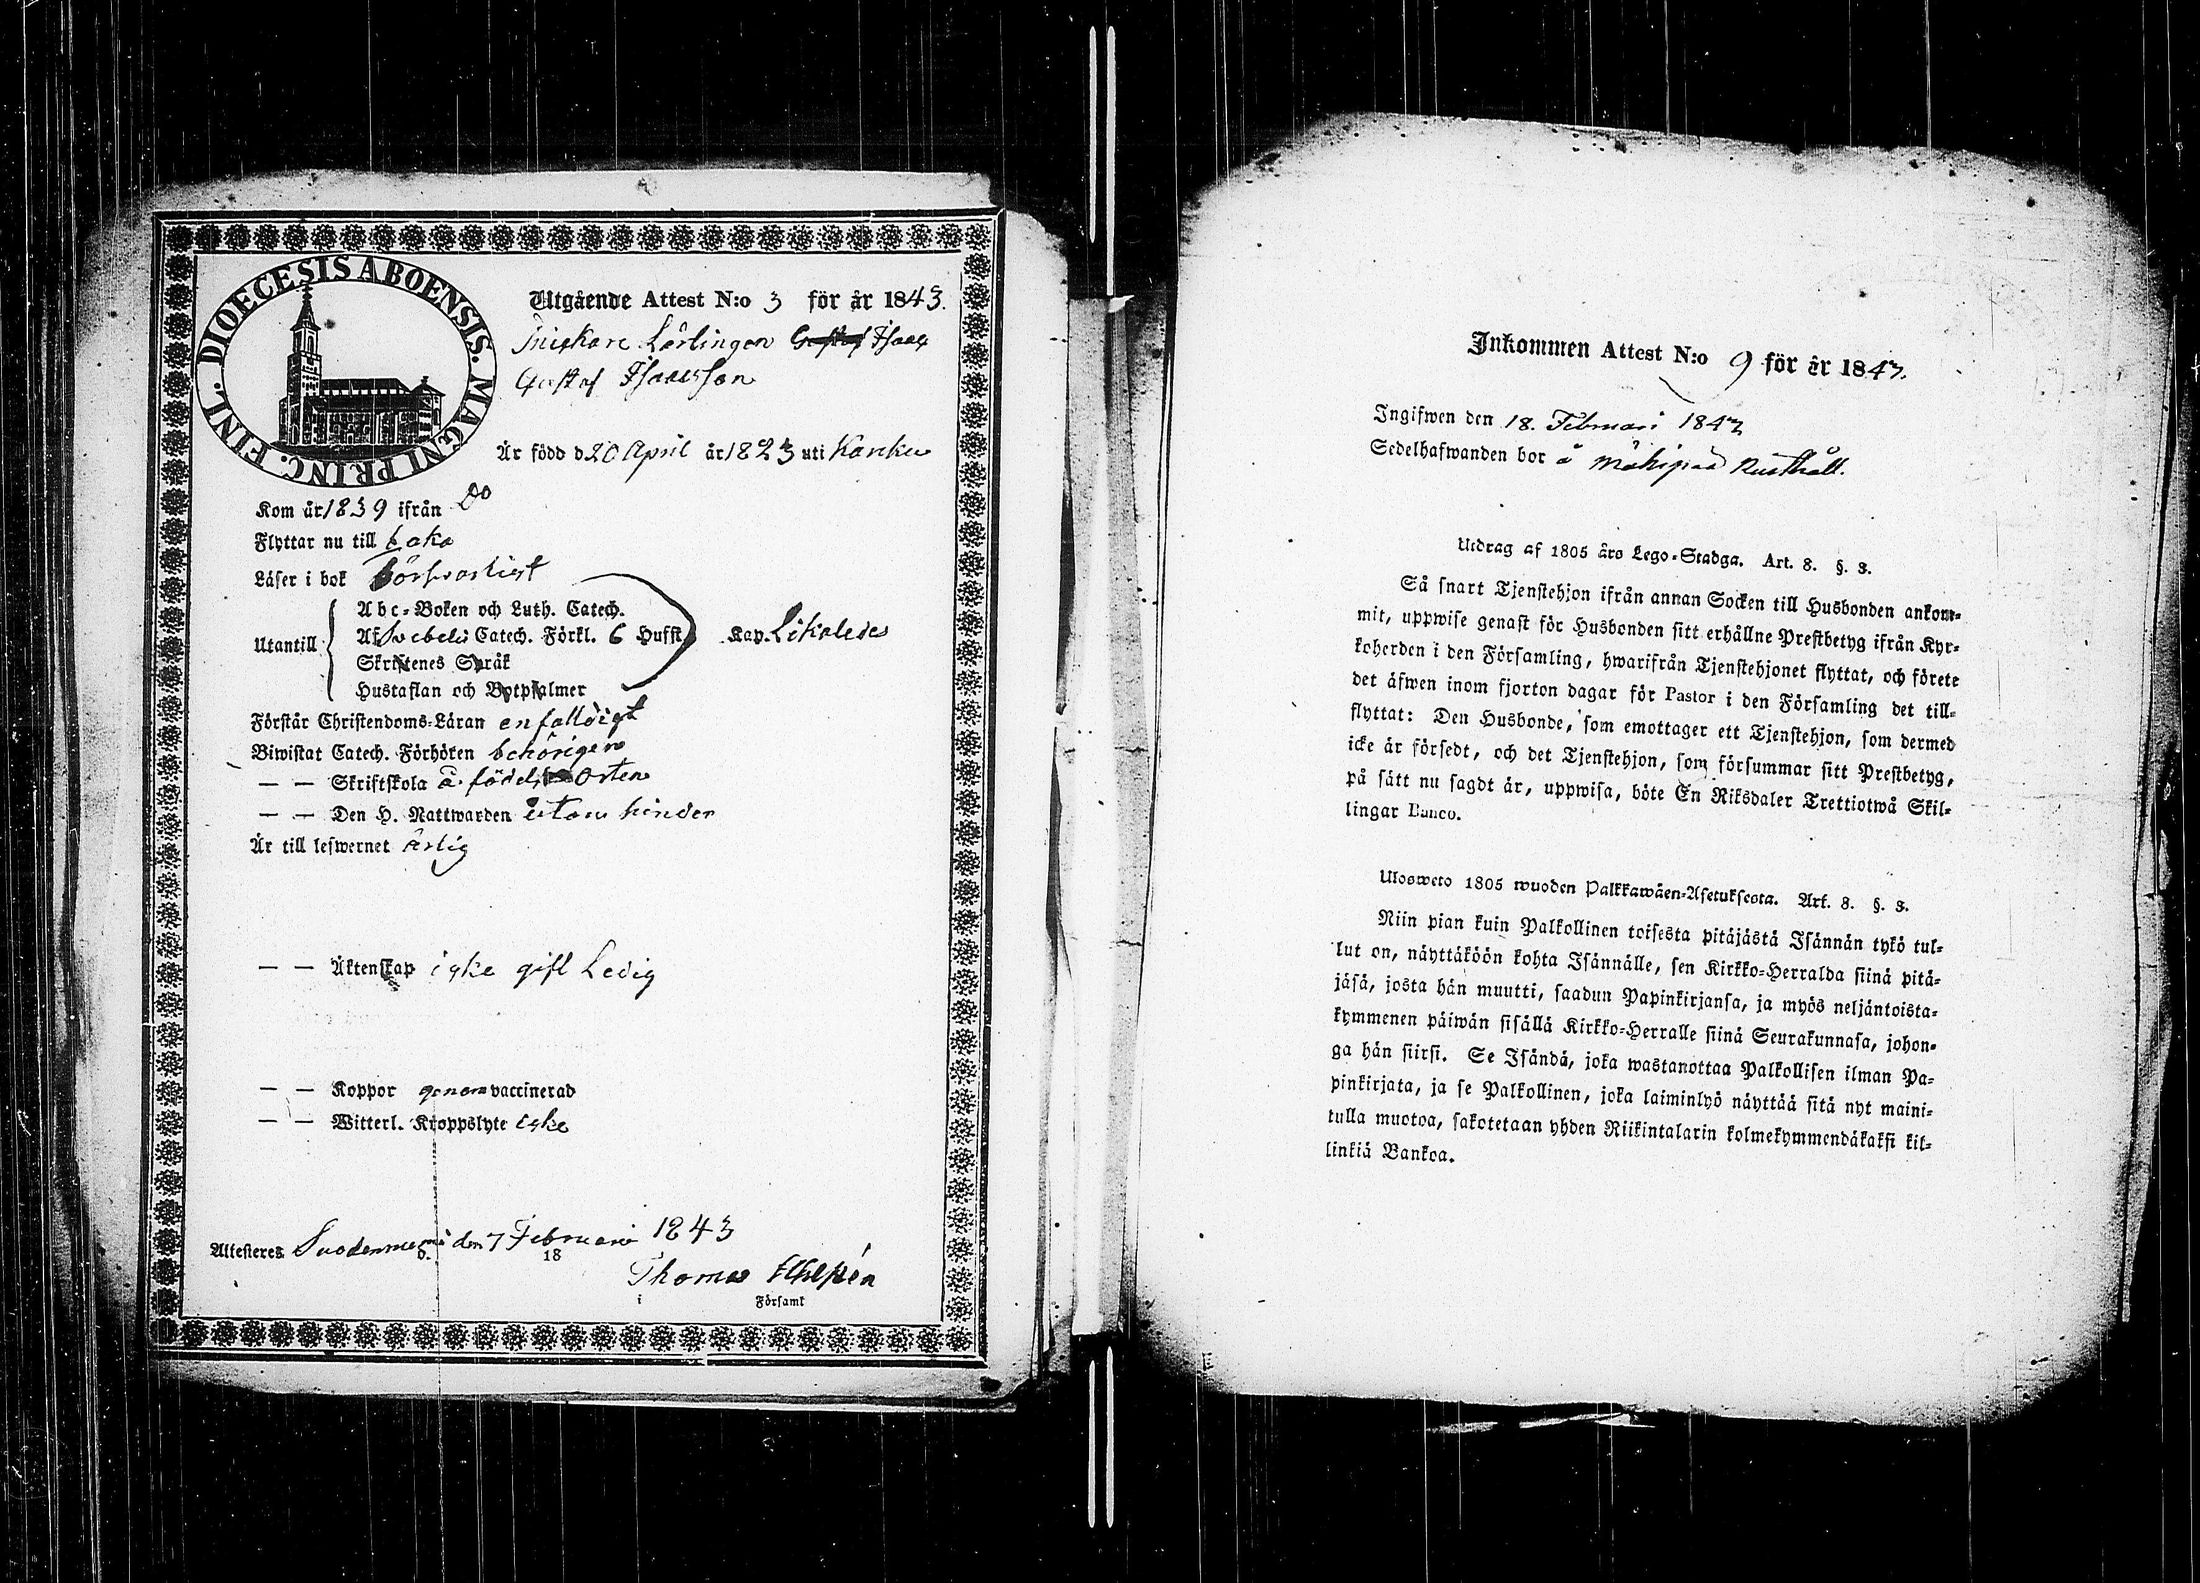 DIOECESIS ABOENSIS. MAGNI PRINC. FINL.
Utgående Attest N:o 3 för år 1843.
Lärlingen Gustaf Isaac
Gustaf Isaacsson
Är född d 20 April år 1823 uti Karku
Kom år 1839 ifrån Do
Flyttar nu till
Läser i bok försvarligt
Utantill
Abc-Boken och Luth. Catech.
Af Svebelii Catech. Förkl. 6 Hufst. Kap. Likaledes
Skriftenes Språk
Hustaflan och Botpsalmer
Förstår Christendoms-Läran enfaldigt
Biwistat Catech. Förhören behörigen
— — Skriftskola å födelse Orten
— — Den H. Nattwarden utan hinder
Är till lefwernet ärlig
— — Äktenskap icke gift Ledig
— — Koppor genom vaccinerad
— — Witterl. Kroppslyte icke
Attesteres Suodenniemi d. den 7 Februari 1843
18
Thomas
i Församl
Inkommen Attest N:o 9 för år 1843.
Ingifwen den 18. Februari 1843
Sedelhafwanden bor å Mähipää Rusthåll.
Utdrag af 1805 års Lego-Stadga. Art. 8. §. 3.
Så snart Tjenstehjon ifrån annan Socken till Husbonden ankom-
mit, uppwise genast för Husbonden sitt erhållne Prestbetyg ifrån Kyr-
koherden i den Församling, hwarifrån Tjenstehjonet flyttat, och förete
det äfwen inom fjorton dagar för Pastor i den Församling det till-
flyttat: Den Husbonde, som emottager ett Tjenstehjon, som dermed
icke är försedt, och det Tjenstehjon, som försummar sitt Prestbetyg,
på sätt nu sagdt är, uppwisa, böte En Riksdaler Trettiotwå Skil-
lingar Banco.
Ulosweto 1805 wuoden Palkkawäen-Asetuksesta. Art. 8. §. 3.
Niin pian kuin Palkollinen toisesta pitäjästä Isännän tykö tul-
lut on, näyttäköön kohta Isännälle, sen Kirkko-Herralda siinä pitä-
jäsä, josta hän muutti, saadun Papinkirjansa, ja myös neljäntoista-
kymmenen päiwän sisällä Kirkko-Herralle siinä Seurakunnasa, johon-
ga hän siirsi. Se Isändä, joka wastanottaa Palkollisen ilman Pa-
pinkirjata, ja se Palkollinen, joka laiminlyö näyttää sitä nyt maini-
tulla muotoa, sakotetaan yhden Riikintalarin kolmekymmendäkaksi kil-
linkiä Bankoa.